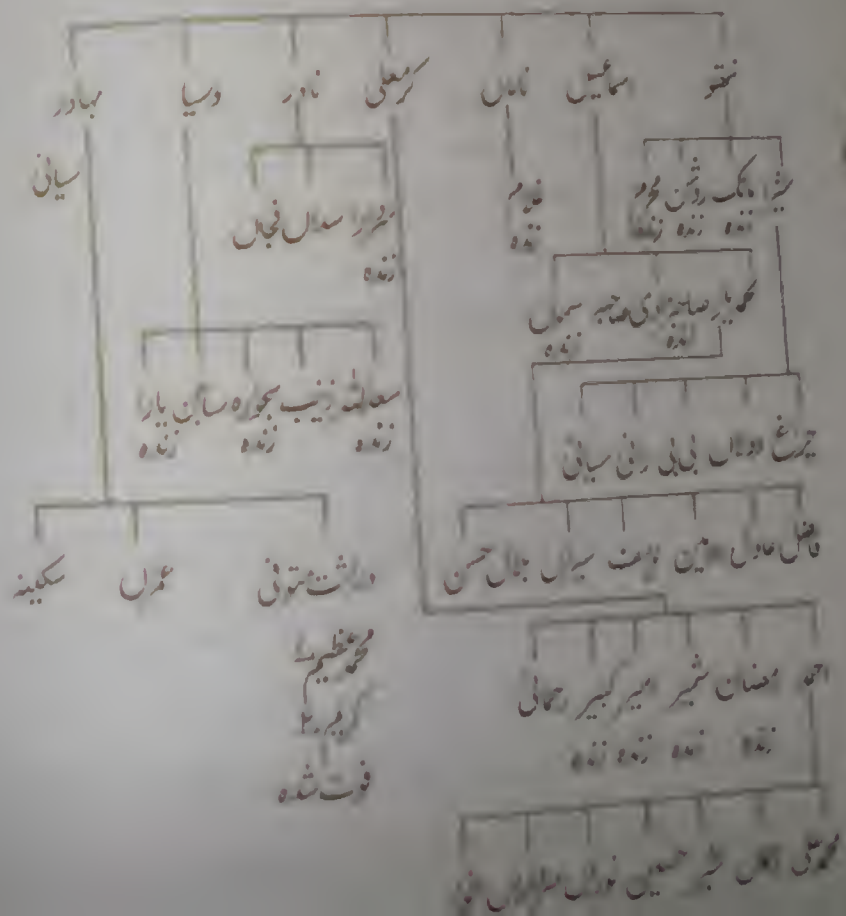 نختو اسماعیل ناماں کرمعلی نادر وسیا بہادر
سیانی
شیرا مانک روشن محرم
زندہ زندہ زندہ
غلام
زندہ
سردارا سداں فجاں
زندہ
محمد یار صاحبزادی صاحبہ سماں
زندہ زندہ
سعداللہ زینب ہجورہ سابن یارا
زندہ زندہ زندہ زندہ
چراغ دولاں بی بی رانی سیانی
فاضل عادل امین یوسف سیراں بلال حسن
وراثت متوفی عمراں سکینہ
محمد عظیم
فوت شدہ
احمد رمضان شمیر امیر کبیر رحمانی
زندہ زندہ زندہ زندہ
محمد علی شبیر حسین نوراں